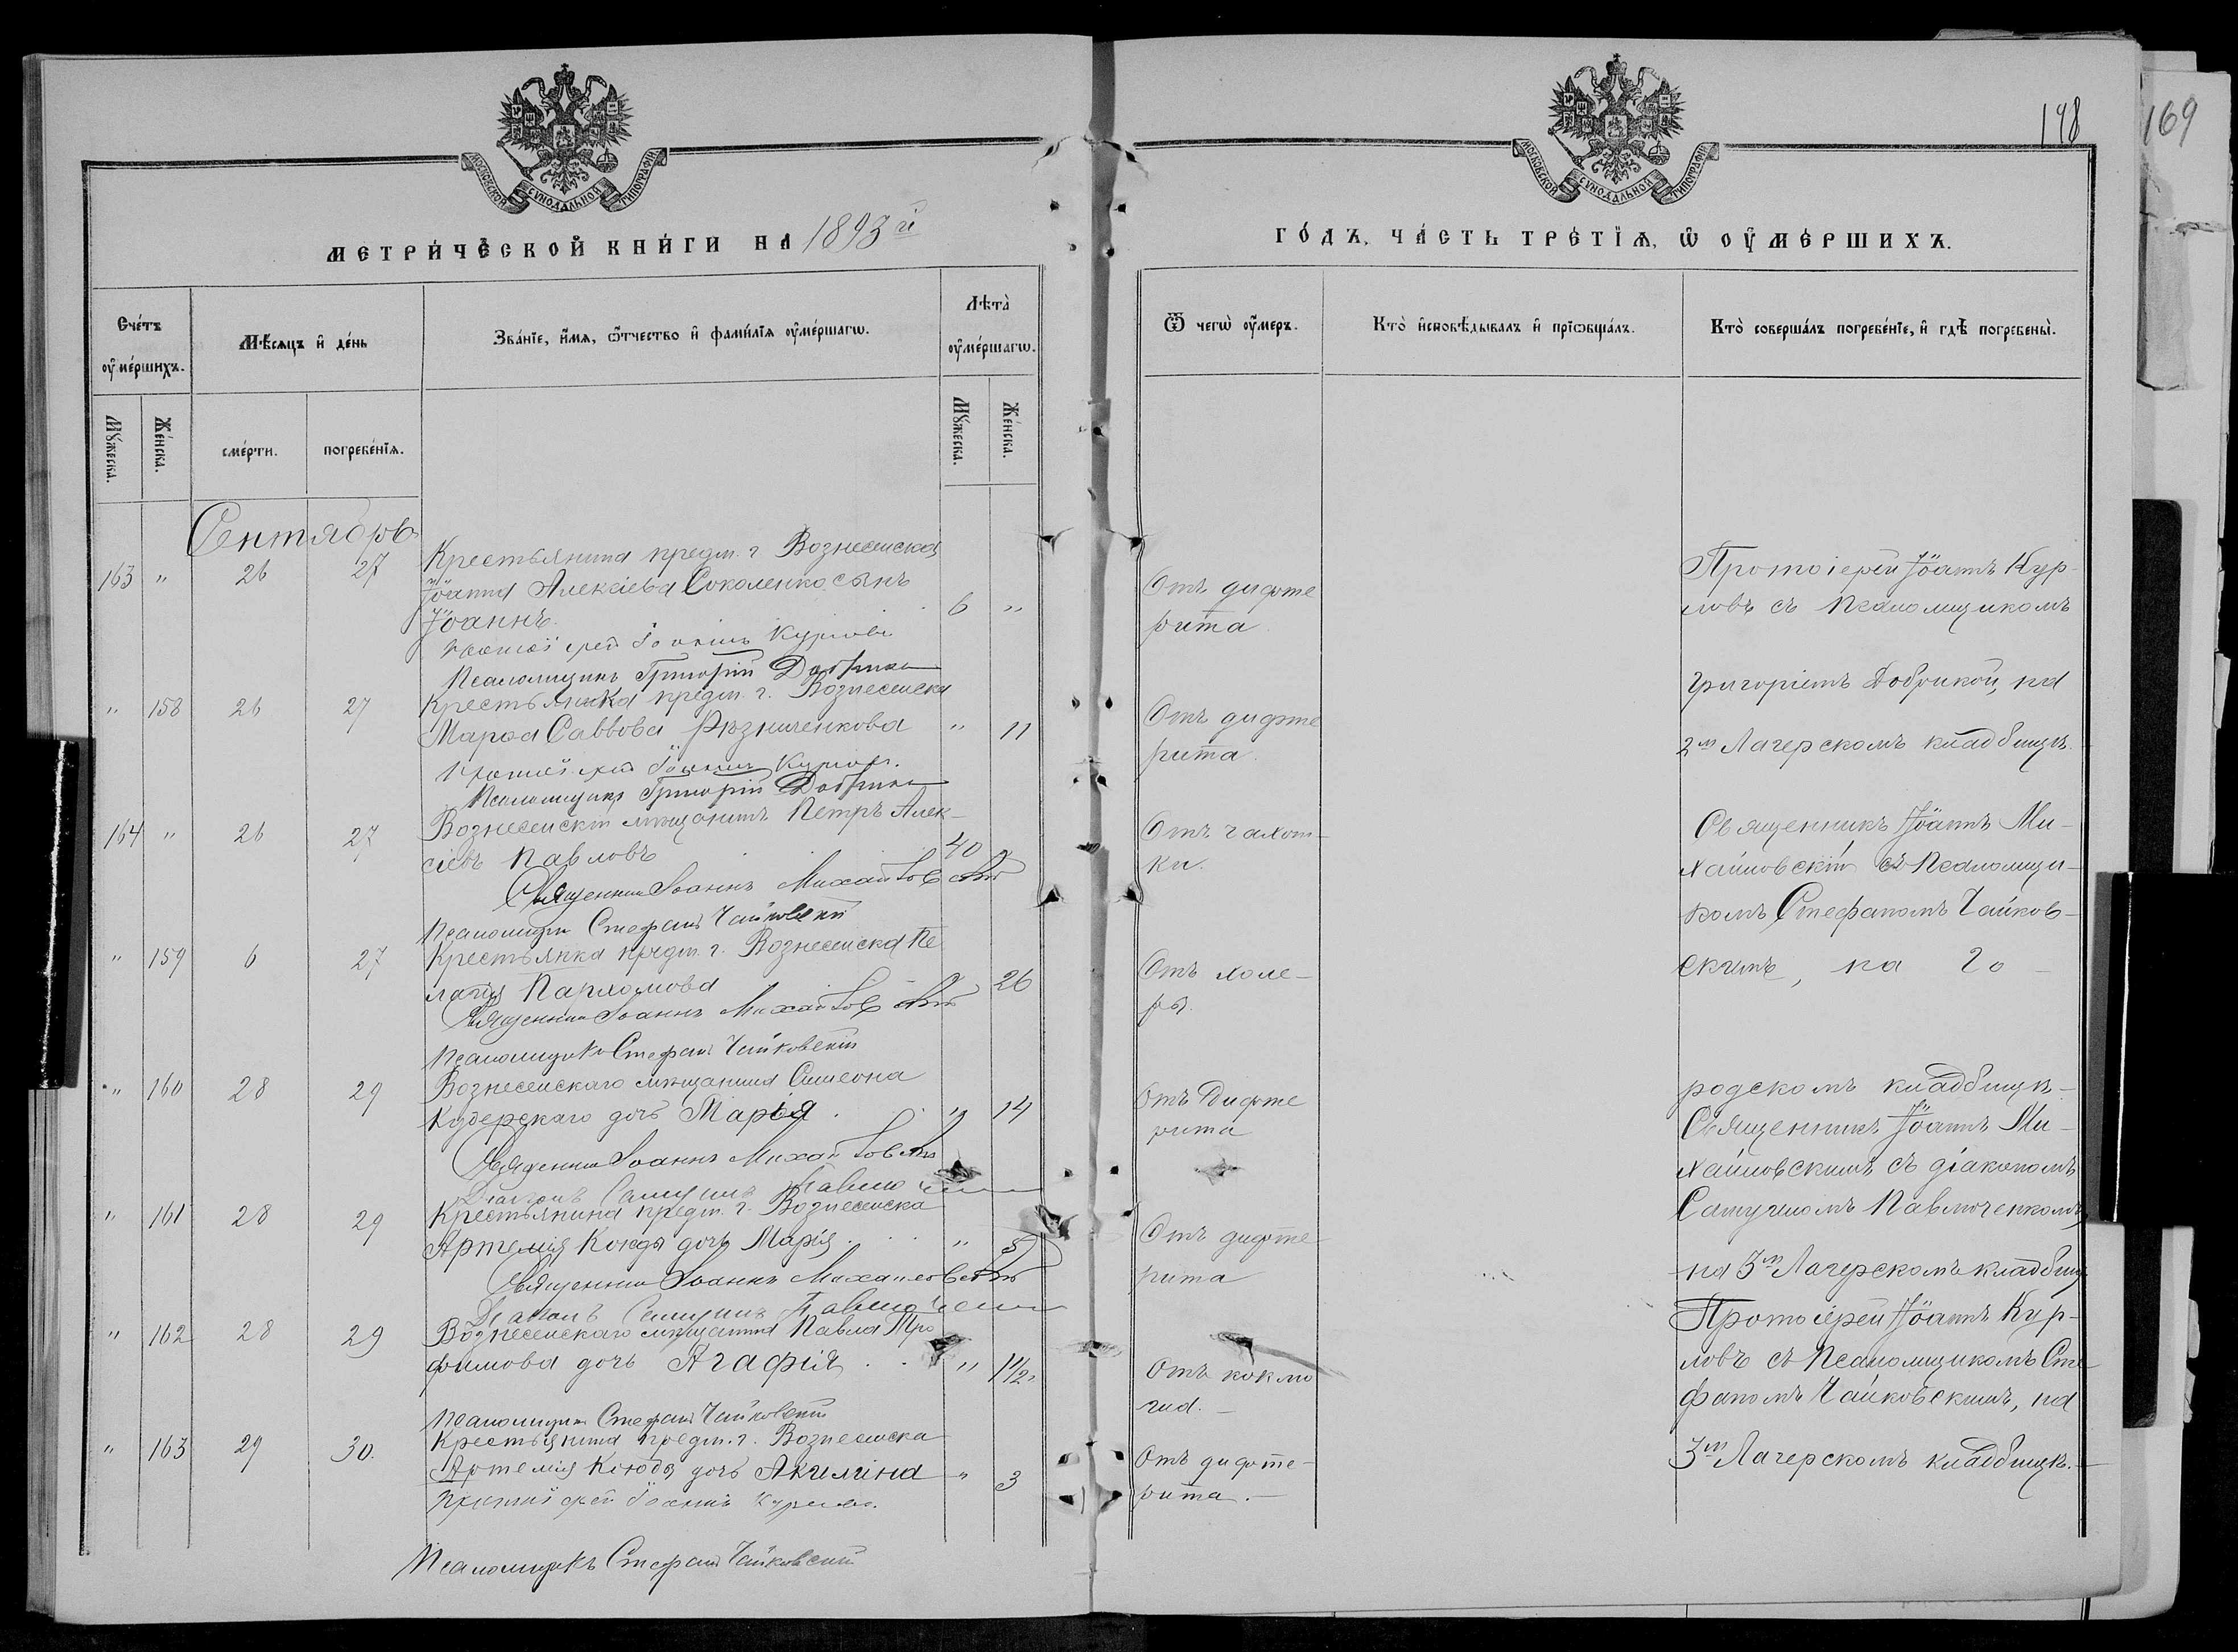 МОСКОВСКОЙ СѴНОДАЛЬНОЙ ТИПОГРАФІИ
МЕТРИ́ЧЕСКОЙ КНИ́ГИ НА 1893й
Сче́тъ оу҆ме́ршихъ.
Мѣ́сяцъ и҆ де́нь
Зва́нїе, и҆́мѧ, ѻ҆́тчество и҆ фами́лїѧ оу҆ме́ршагѡ.
Лѣта̀ оу҆ме́ршагѡ.
Мꙋ́жеска.
Же́нска.
сме́рти.
погребе́нїѧ.
Мꙋ́жеска.
Же́нска.
Сентябрь
163 " 26 27 Крестьянина предм. г. Вознесенска
Іоанна Алексіева Соколенко сынъ
Іоаннъ. 6 "
Протоіерей Іоаннъ Курловъ
Псаломщикъ Григорій Добрика
" 158 26 27 Крестьянка предм. г. Вознесенска
Марѳа Саввова Рѣзниченкова " 11
Протоіерей Іоаннъ Курловъ.
Псаломщикъ Григорій Добрика
164 " 26 27 Вознесенскій мѣщанинъ Петръ Алек-
сіевъ Павловъ 40 "
Священникъ Іоаннъ Михайловскій
Псаломщикъ Стефанъ Чайковскій
" 159 6 27 Крестьянка предм. г. Вознесенска Пе
лагія Пархомова " 26
Священникъ Іоаннъ Михайловскій
Псаломщикъ Стефанъ Чайковскій
" 160 28 29 Вознесенскаго мѣщанина Симеона
Кудерскаго дочь Марія . . " 14
Священникъ Іоаннъ Михайловскій
Діаконъ Самуилъ Павлюченко
" 161 28 29 Крестьянина предм. г. Вознесенска
Артемія Конда дочь Марія . . . " 5
Священникъ Іоаннъ Михайловскій
Діаконъ Самуилъ Павлюченко
" 162 28 29 Вознесенскаго мѣщанина Павла Тро
фимова дочь Агафія . . " 1 1/2.
Псаломщикъ Стефанъ Чайковскій
" 163 29 30. Крестьянина предм. г. Вознесенска
Артемія дочь Акилина " 3
Протоіерей Іоаннъ Курловъ.
Псаломщикъ Стефанъ Чайковскій
МОСКОВСКОЙ СѴНОДАЛЬНОЙ ТИПОГРАФІИ
198
169
ГО́ДЪ, ЧА́СТЬ ТРЕ́ТЇѦ, Ѡ ОУ҆МЕ́РШИХЪ.
Ѿ чегѡ̀ оу҆́меръ.
Кто̀ и҆сповѣ́дывалъ и҆ прїѡбща́лъ.
Кто̀ соверша́лъ погребе́нїе, и҆ гдѣ̀ погребены̀.
Отъ дифте
рита.
Отъ дифте
рита.
Отъ чахот-
ки.
Отъ холе-
ры.
Отъ Дифте
рита
Отъ дифте
рита
Отъ коклю
ша.-
Отъ дифте-
рита.-
Протоіерей Іоаннъ Кур-
ловъ съ Псаломщикомъ
Григоріемъ Добрикой, на
2м Лагерскомъ кладбищѣ.
Священникъ Іоаннъ Ми-
хайловскій съ Псаломщи-
комъ Стефаномъ Чайков-
скимъ, на Го-
родскомъ кладбищѣ.-
Священникъ Іоаннъ Ми-
хайловскимъ съ діакономъ
Самуиломъ Павлюченкомъ,
на 3м Лагерскомъ кладбищѣ
Протоіерей Іоаннъ Кур-
ловъ съ Псаломщикомъ Сте
фаномъ Чайковскимъ, на
3м Лагерскомъ кладбищѣ.-